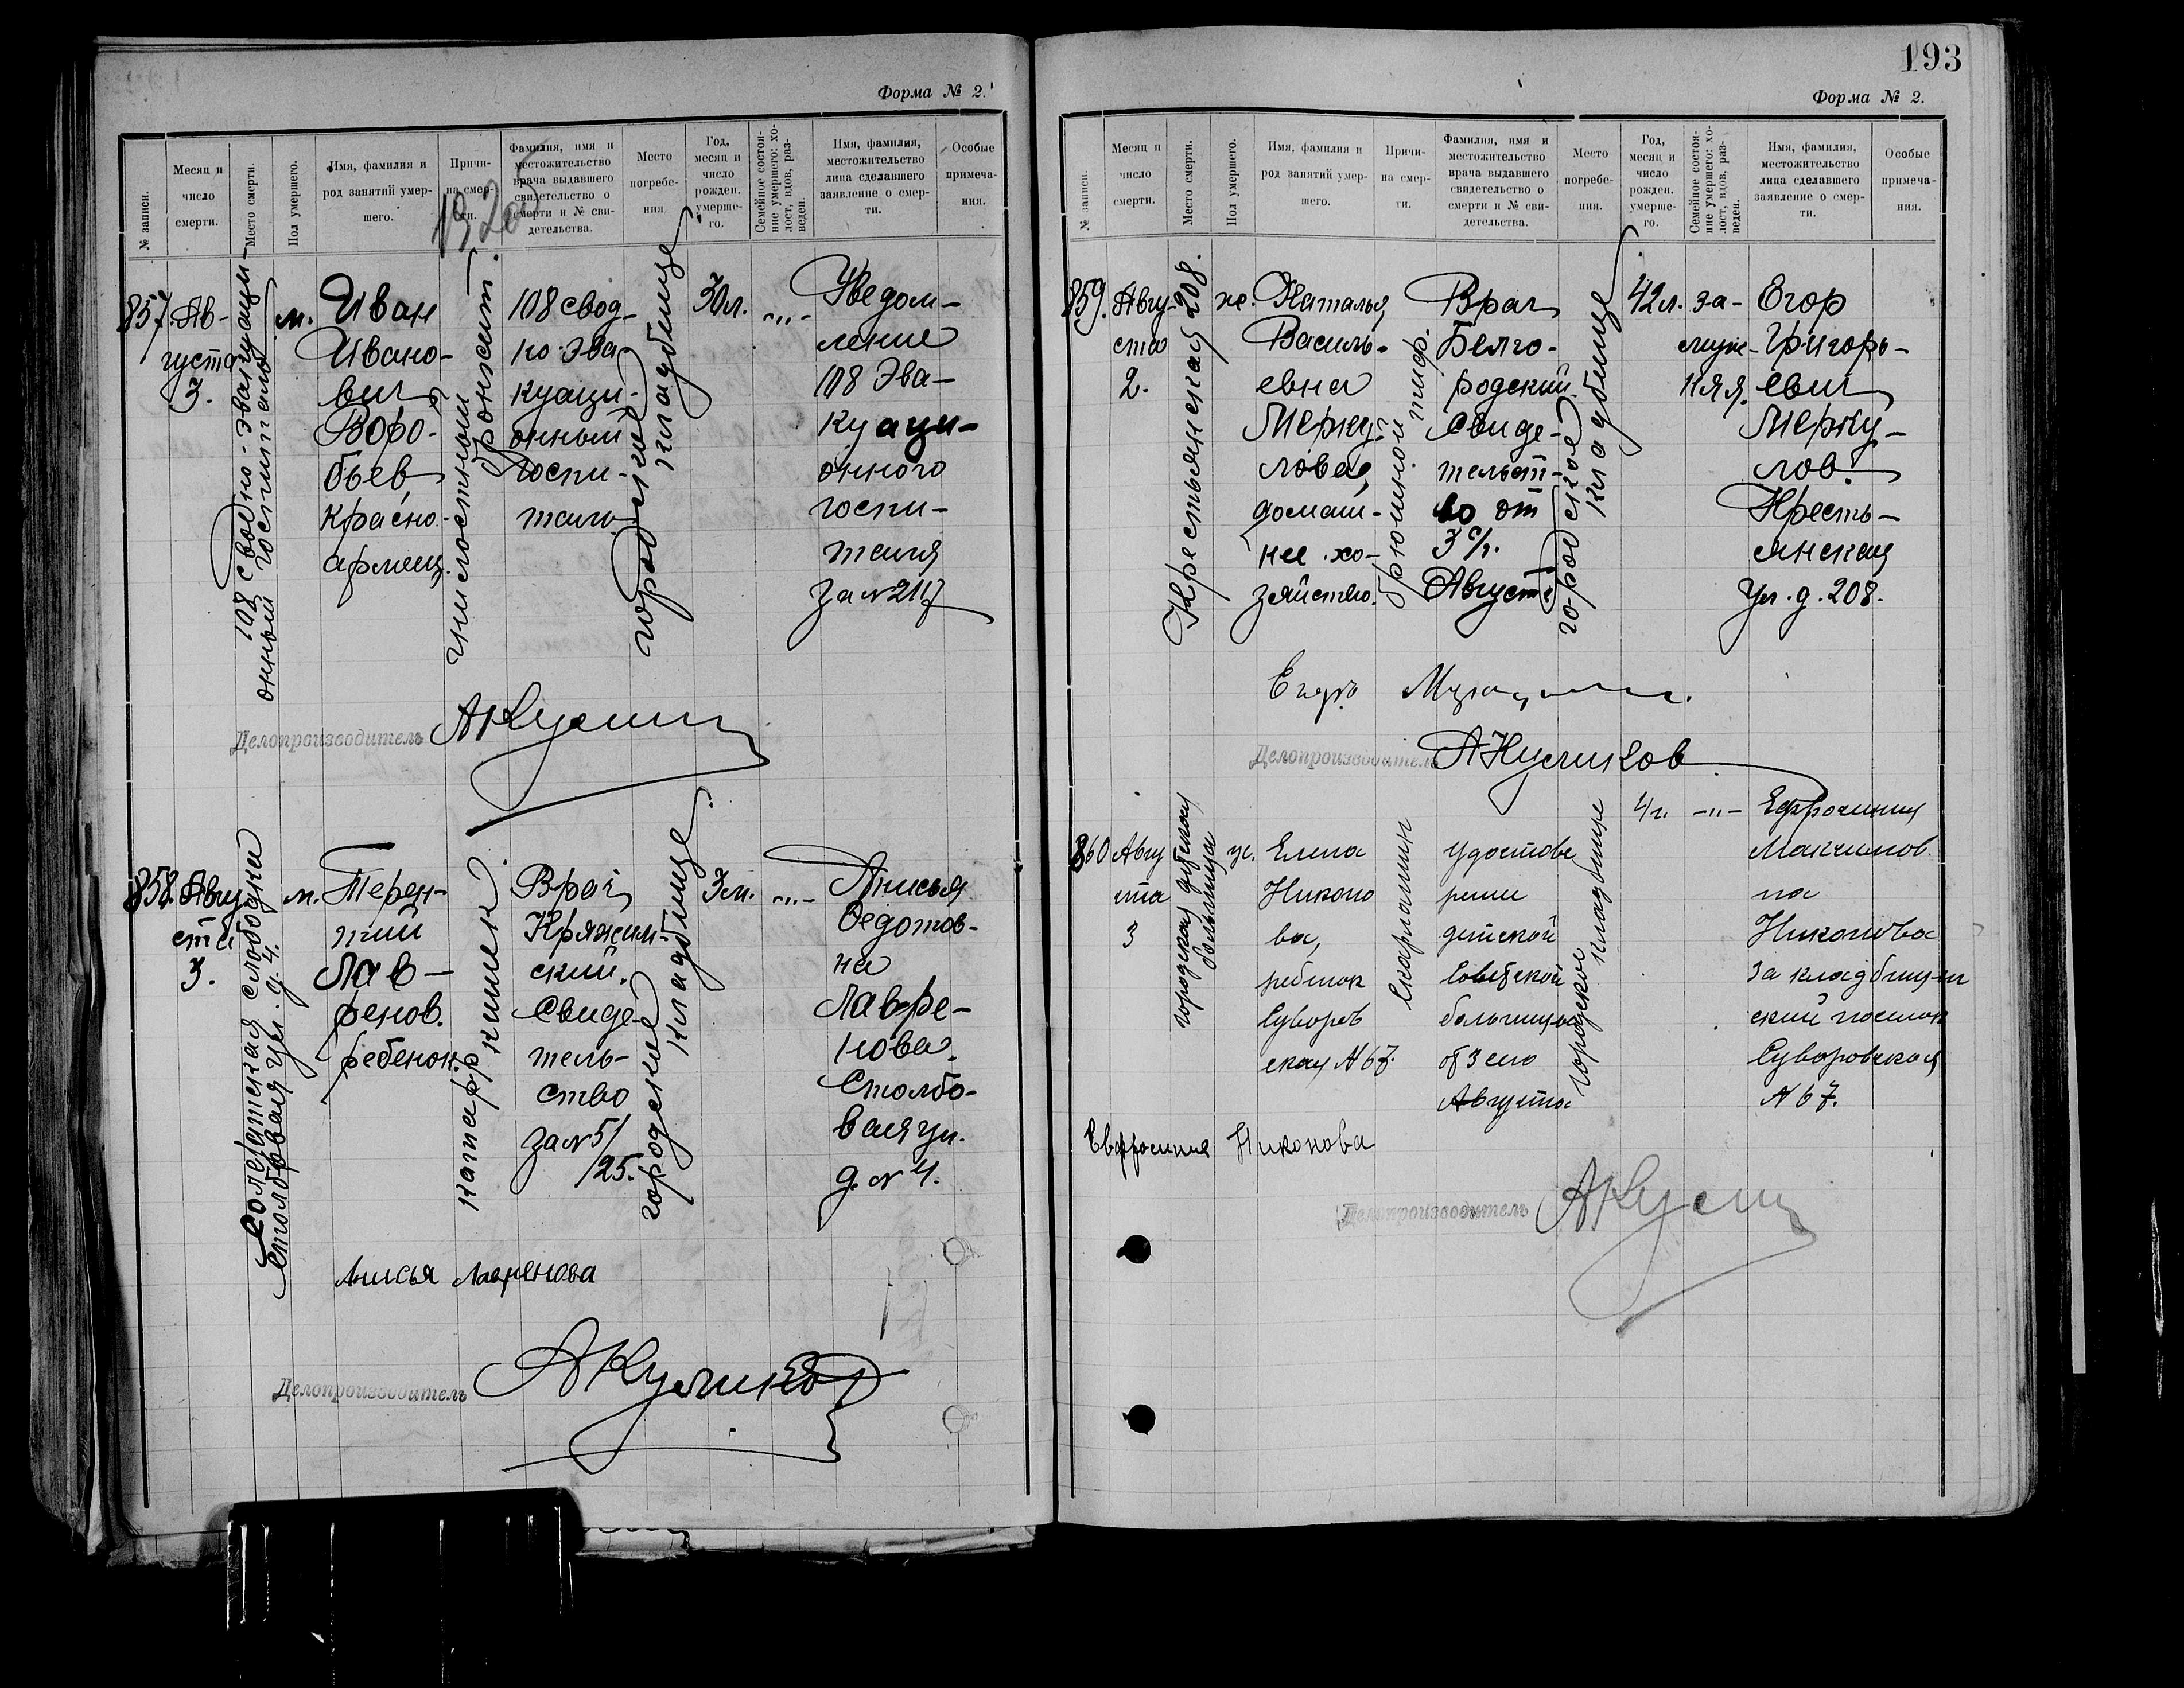 Форма № 2.
№ записи.
Месяц и число смерти.
Место смерти.
Пол умершего.
Имя, фамилия и род занятий умершего.
Причина смерти.
Фамилия, имя и местожительство врача выдавшего свидетельство о смерти и № свидетельства.
Место погребения
Год, месяц и число рожден. умершего.
Семейное состояние умершего: холост, вдов, разведен.
Имя, фамилия, местожительство лица сделавшего заявление о смерти.
Особые примечания.
1920
857.
Ав-
густа
3.
108 сводно-эвакуаци-
онный госпиталь
м.
Иван
Ивано-
вич
Воро-
бьев
красно-
армеец.
гнилостный
бронхит.
108 свод-
но-эва-
куаци-
онный
госпи-
таль
городское
кладбище
30л.
-"-
Уведом-
ление
108 Эва-
куаци-
онного
госпи-
таля
за №2117
Делопроизводитель
858.
Авгу
ста
3.
Солдатская слобода
Столбовая ул. д. 4.
м.
Терен-
тий
Лав-
ренов.
ребенок.
катарр кишек
Врач
Кряжим-
ский.
Свиде-
тель-
ство
за № 51
/25.
городское
кладбище
3м.
-"-
Анисья
Федотов-
на
Лавре-
нова.
Столбо-
вая ул.
д. № 4.
Анисья Лавренова
Делопроизводитель АКуликов
193
Форма № 2.
№ записи.
Месяц и число смерти.
Место смерти.
Пол умершего.
Имя, фамилия и род занятий умершего.
Причина смерти.
Фамилия, имя и местожительство врача выдавшего свидетельство о смерти и № свидетельства.
Место погребения.
Год, месяц и число рожден. умершего.
Семейное состояние умершего: холост, вдов, разведен.
Имя, фамилия, местожительство лица сделавшего заявление о смерти.
Особые примечания.
859.
Авгу-
ста
2.
Крестьянская 208.
ж.
Наталья
Василь-
евна
Мерку-
лова
домаш-
нее хо-
зяйство.
брюшной тиф.
Врач
Белго-
родский.
Свиде-
тельст-
во от
3 с/г.
Август
городское
кладбище
42л.
за-
муж-
няя.
Егор
Григорь-
евич
Мерку-
лов.
Кресть-
янская
ул. д. 208.
Делопроизводитель АКуликов
860
Авгу
ста
3
городская детская
больница
ж.
Елена
Николо
ва,
ребенок
Суворов
ская № 67.
Скарлатина
удостове
рение
детской
Советской
больницы
от 3 его
Августа
городское
кладбище
4г.
-"-
Ефросиния
Максимов
на
Никонова
за кладбищен
ский поселок
Суворовская
№ 67.
Евфросиния Никонова
Делопроизводитель